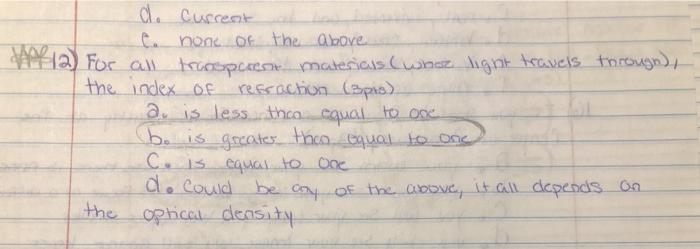 d. Current
e. none of the above
12) For all transparent materials (where light travels through),
the index of refraction (3pts)
a. is less than equal to one
b. is greater than equal to one
c. is equal to one
d. Could be any of the above, it all depends on
the optical density